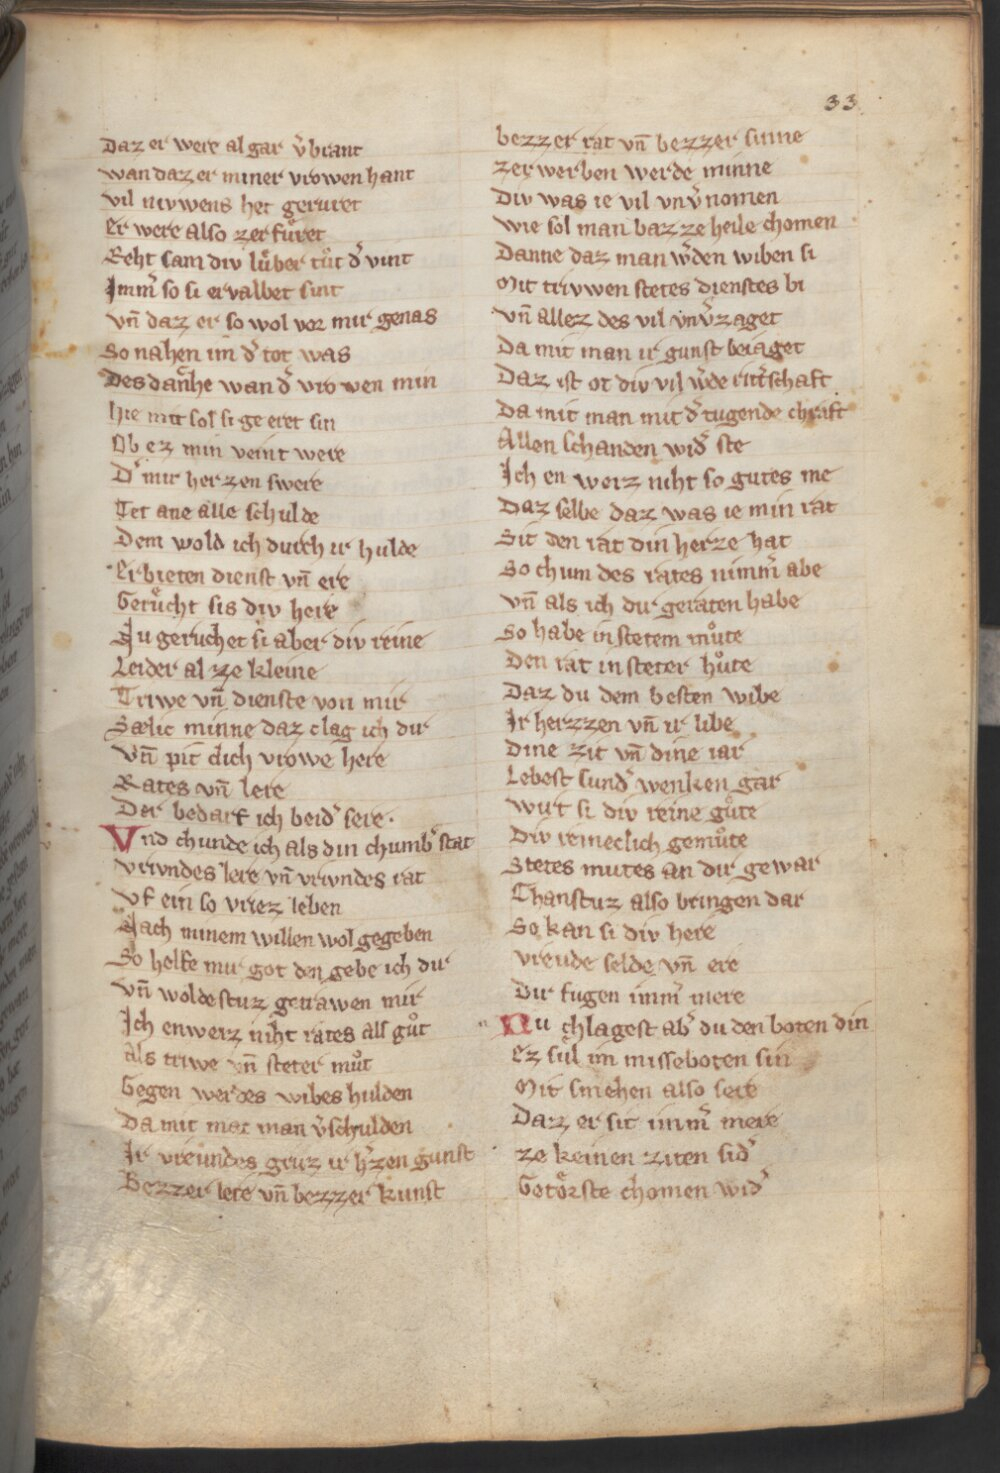 33
Daz er were al gar v̕brant
wan daz er miner vrowen hant
vil nivwens het geruret
Er were also zerfůret
Reht sam div lůber tůt d̕ vint
Imm̕ so si ervalbet sint
vn̄ daz er so wol vor mir genas
So nahen im d̕ tot was
Des danche wan d̕ vrowen min
hie mit sol si geeret sin
Ob ez min veint were
D̕ mir herzen swere
Tet ane alle schulde
Dem wold ich durch ir hulde
Erbieten dienst vn̄ ere
Gerůcht sis div here
Nu geruchet si aber div reine
Leider al ze kleine
Triwe vn̄ dienste von mir
Sælic minne daz clag ich dir
vn̄ pit dich vrowe here
Rates vn̄ lere
Der bedarf ich beid̕ sere.
Vnd chunde ich als din chumb̕ stat
vrivndes lere vn̄ vrivndes rat
vf ein so vriez leben
Nach minem willen wol gegeben
So helfe mir got den gebe ich dir
vn̄ woldestuz getrawen mir
Ich enweiz niht rates als gůt
Als triwe vn̄ steter můt
Gegen werdes wibes hulden
Da mit mac man v̕schulden
Ir vreundes gruz ir h̕zen gunst
Bezzer lere vn̄ bezzer kunst
bezzer rat vn̄ bezzer sinne
zerwerben werde minne
Div was ie vil vnv̕nomen
wie sol man baz ze heile chomen
Danne daz man w̕den wiben si
Mit trivwen stetes dienstes bi
vn̄ allez des vil vnv̕zaget
Da mit man ir gunst beiaget
Daz ist ot div vil w̕de ritt̕schaft
Da mit man mit d̕ tugende chraft
Allen schanden wid̕ ste
Ich en weiz niht so gutes me
Daz selbe daz was ie min rat
Sit den rat din herze hat
So chum des rates nimm̕ abe
vn̄ als ich dir geraten habe
So habe in stetem můte
Den rat in steter hůte
Daz du dem besten wibe
Ir herzzen vn̄ ir libe
Dine zit vn̄ dine iar
Lebest sund̕ wenken gar
wirt si div reine gůte
Div reineclich gemůte
Stetes mutes an dir gewar
Thanstuz also bringen dar
So kan si div here
vreude selde vn̄ ere
Dir fugen imm̕ mere
Nu chlagest ab̕ du den boten din
Ez sůl im misseboten sin
Mit smehen also sere
Daz er sit imm̕ mere
ze keinen ziten sid̕
Getǒrste chomen wid̕